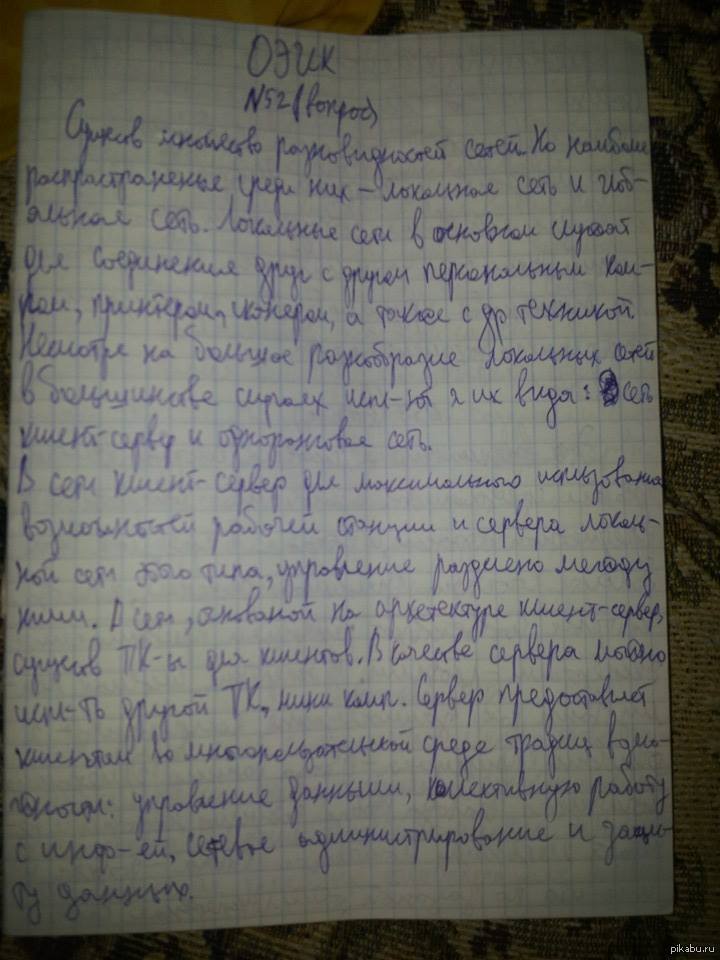 ОЭИК
№52 (вопрос)
Существ множество разновидностей сетей. Но наиболее
распространеные среди них – локальная сеть и глоб-
альная сеть. Локальные сети в основном служат
для соединения друг с другом персональным ком-
ром, принтером, сканером, а также с др техникой.
Несмотря на большое разнообразие локальных сетей
в большинстве случаях исп-ют 2 их вида: сеть
клиент-сервер и одноранговая сеть.
В сети клиент-сервер для максимального использования
возможностей рабочей станции и сервера локаль-
ной сети этого типа, управление разделено между
ними. В сети, основаной на архетектуре клиент-сервер,
существ ПК-ы для клиентов. В качестве сервера можно
исп-ть другой ПК, мини комп. Сервер предоставляет
клиентам во многопользательской среде традиц возмо-
жности: управление данными, колективную работу
с инфо-ей, сетевое администрирование и защи-
ту данных.
pikabu.ru